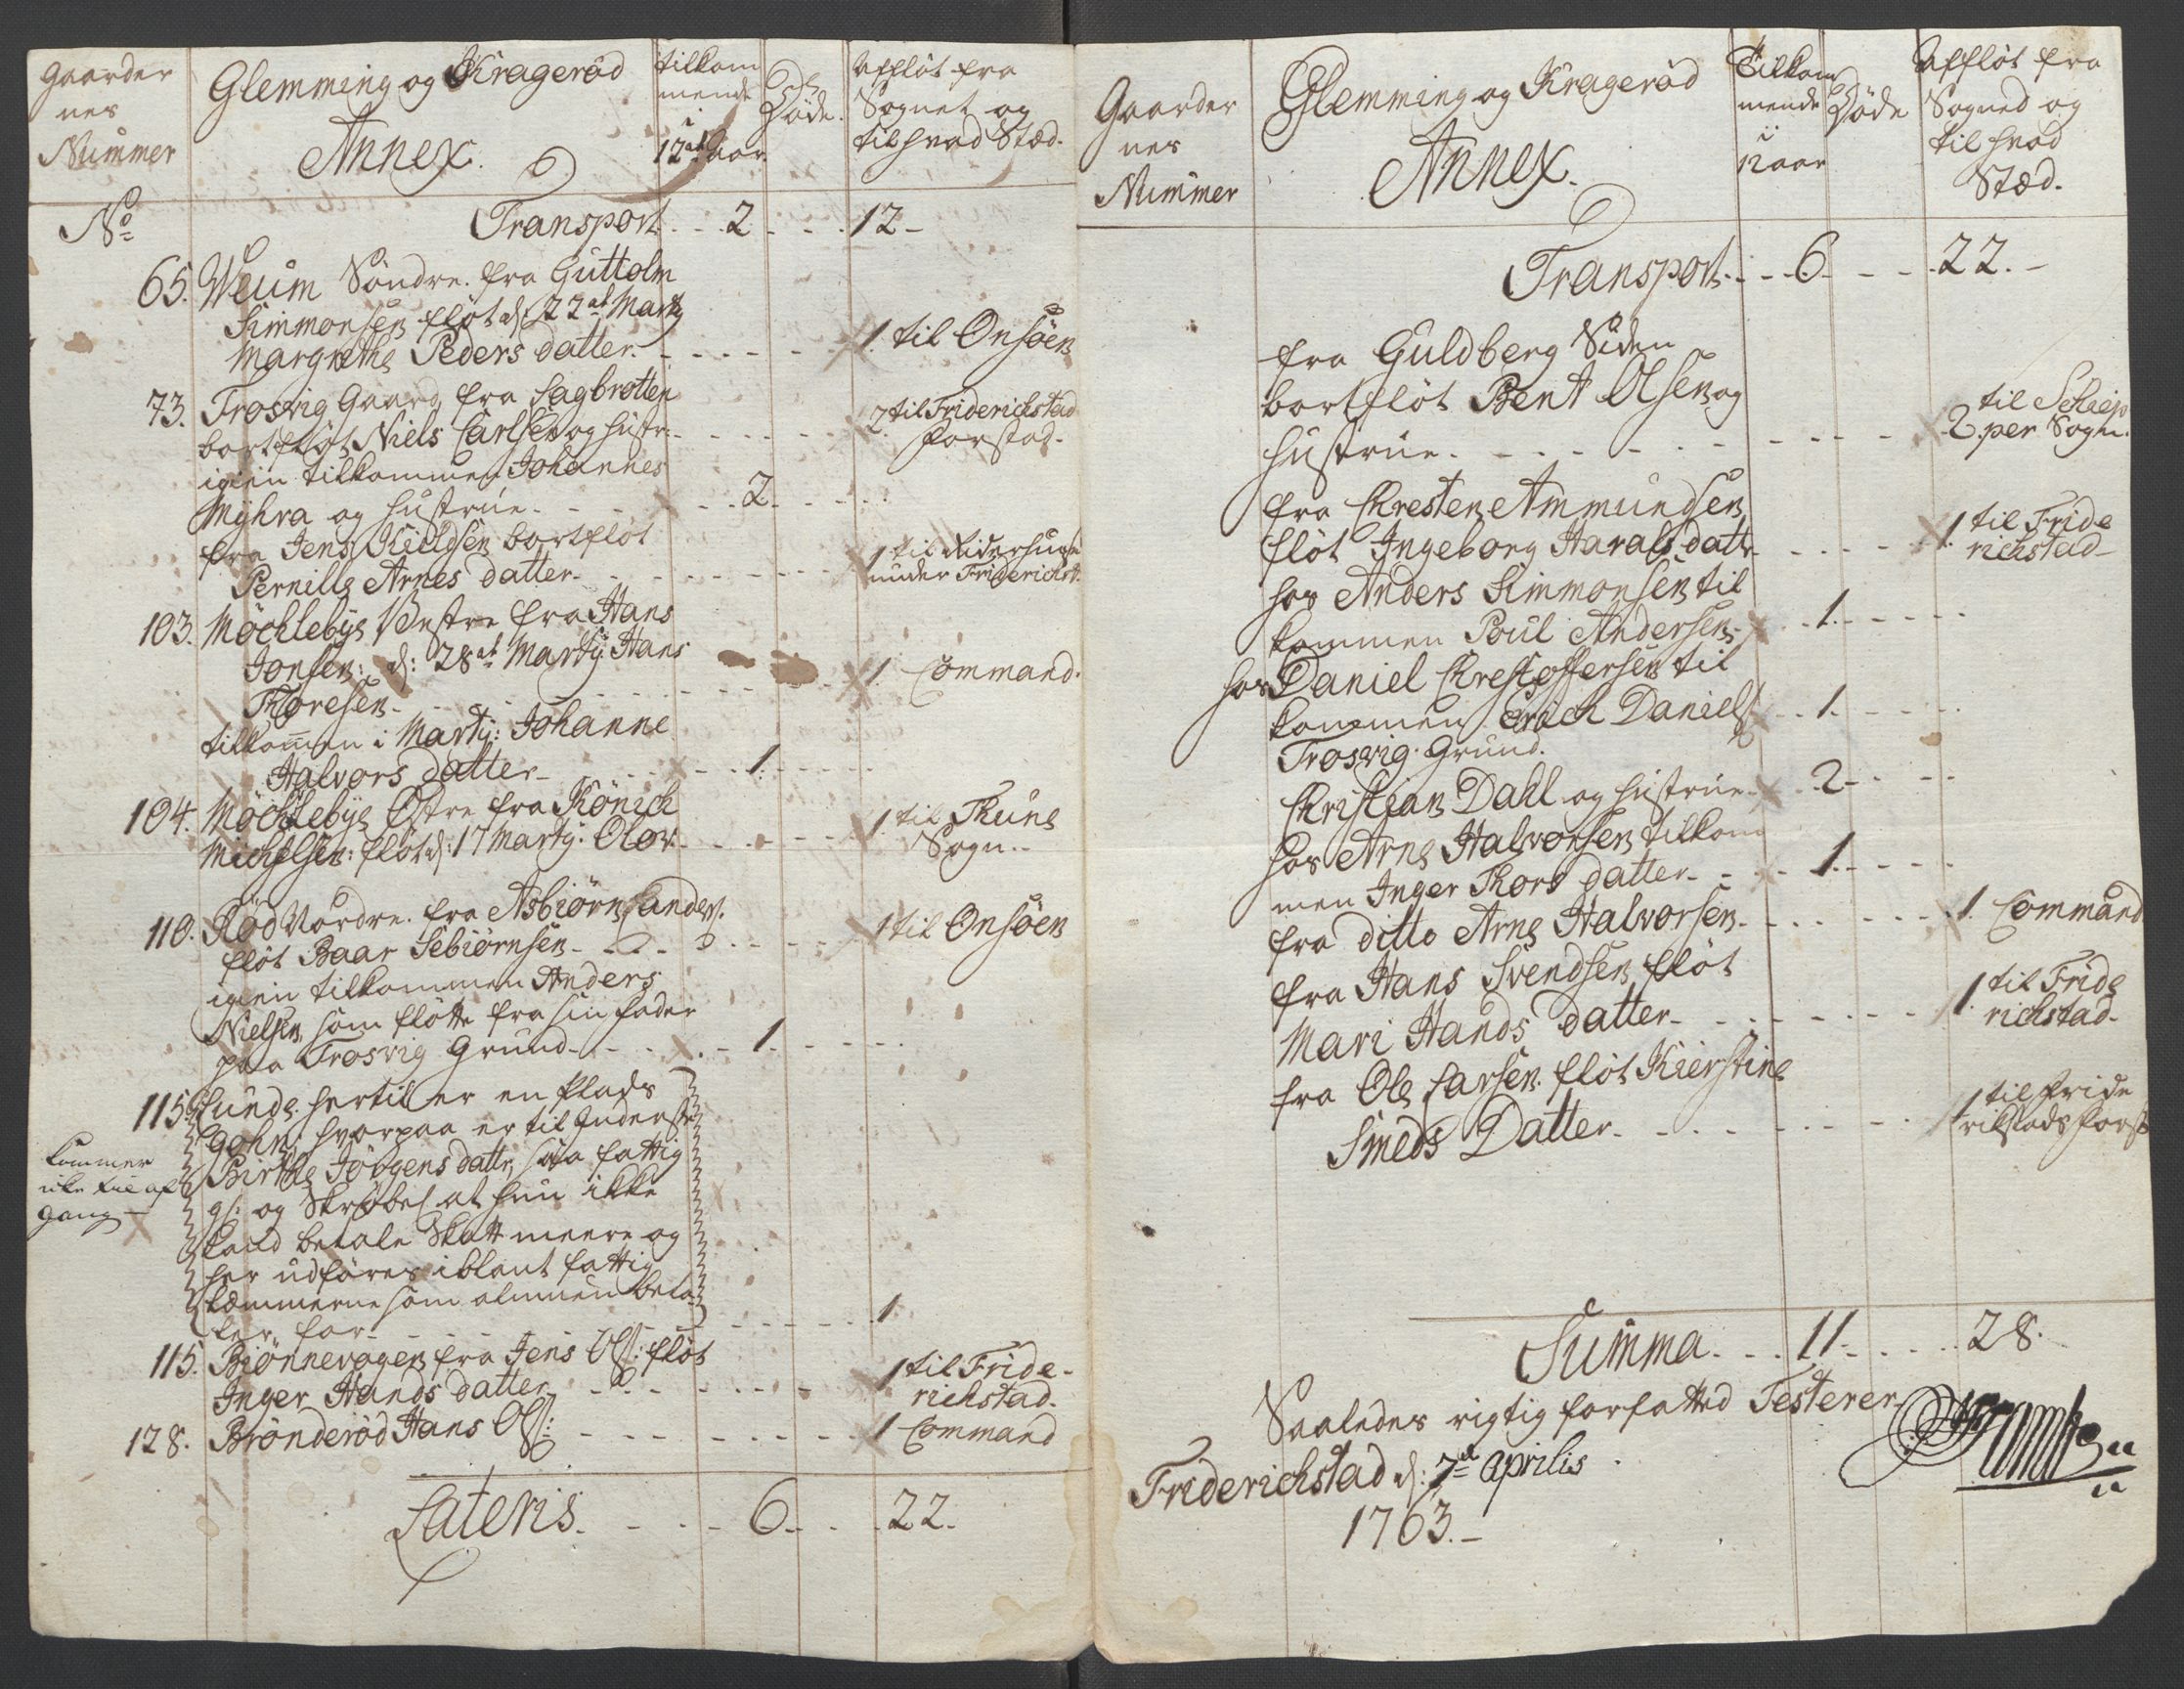 Gaarder
nes
Nummer
Glemming og Kragerød
Annex.
tilkom
mende
i
12te Aar
Døde.
Afflöt fra
Sognet og
til hvad Stæd.
No
Transport - - 2 - - - 12 -
65. Weum Söndre. fra Guttolm
Simmonsen flöt d. 22de Marty
Margrethe Peders datter. - - - - 1. til Onsöen
73. Trosvig Gaard fra Sagbrotten
bortflöt Niels Carlsen og hustr: - - - - 2 til Friderichstad
forstad.
igien tilkommen Johannes
Myhra og hustrue. - - - - 2. - - -
fra Jens Kieldsen bortflöt
Pernille Arnes datter. - - - - 1 til
under Friderichst.
103. Möchlebye Vestre fra Hans
Jonsen: d: 28de Marty Hans
Thoresen - - - - 1 Command.
tilkommen i Marty: Johanne
Halvors datter - - - - 1. - - -
104. Möchlebye Östre fra Könich
Michelsen: flöt d: 17 Marty: Olov - - - - 1. til Thune
Sogn. -
110. Röd Nordre. fra Asbiörn Anders.
flöt Baar Sebiörnsen - - - - 1 til Onsöen
igien tilkommen Anders
Nielsen som flötte fra sin fader
paa Trosvig Grund - - - - 1 - - -
115. Lunde. hertil er en Plads
hvorpaa er til Inderste
Birthe Jörgens datter, saa fattig
kommer
ikke til af
gang
og Skröbel. at hun ikke
kand betale Skatt meere og
her udföres iblant fattig
lemmerne som almuen beta-
ler for - - - - 1
115. Biönnevogen fra Jens Ols: flöt
Inger Hands datter - - - - 1 til Fride-
richstad.
128. Brönderöd Hans Ols: - - - - 1 Command
Lateris. - - - 6. - - 22.
Gaarder
nes
Nummer
Glemming og Kragerød
Annex.
Tilkom
mende
i
12 aar
Døde
Afflöt fra
Sogned og
til hvad
Stæd.
Transport. - - 6. - - - 22. -
fra Guldberg Siden
bortflöt Bent Olsen og
hustrue. - - - - til Schiep
2. per Sogn.
fra Chresten Ammundsen
flöt Ingeborg Haralds datter - - - - 1. til Fride
richstad -
hos Anders Simmonsen til
kommen Poul Andersen - - 1. - - -
hos Daniel Chrestoffersen til
kommen Erich Daniels: - - 1. - - -
Trosvig Grund.
Christian Dahl og hustrue - - 2 - - -
hos Arne Halvorsen tilkom
men Inger Thors datter - - - 1. - - -
fra ditto Arne Halvorsen - - - - 1. Command
fra Hans Svendsen flöt
Mari Hands datter - - - - 1. til Fride
richstad -
fra Ole Larsen flöt Kierstine
Smeds Datter - - - - 1 til Fride
richstads forst:
Summa. - - 11. - - - 28.
Saaledes rigtig forfatted Testerer
Friderichstad d: 7de Aprilis
1763. -